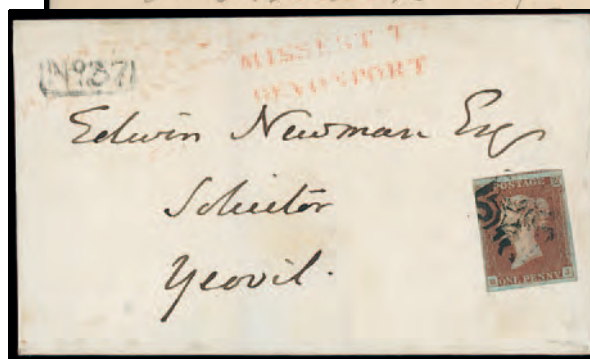 No.37
MISSENT T
DEVONPORT
Edwin Newman Esq
Solicitor
Yeovil.
POSTAGE
ONE PENNY